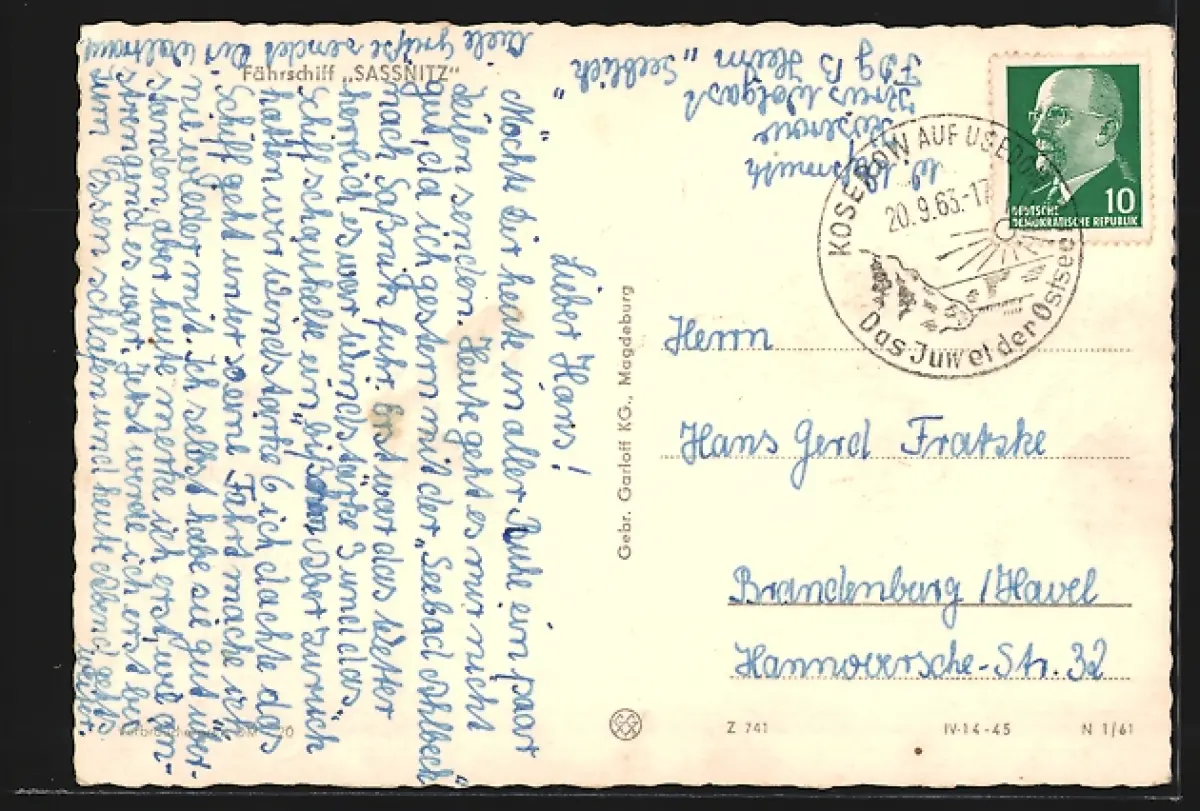 Fährschiff „SASSNITZ"
Lieber Hans!
Möchte Dir heute in aller Ruhe ein paar
Zeilen senden. Heute geht es mir nicht
gut, da ich gestern mit der „Seebad Ahlbeck"
nach Saßnitz fuhr. Erst war das Wetter
herrlich es war Windstärke 3 und das
Schiff schaukelte ein bißchen Aber zurück
hatten wir Windstärke 6 ich dachte das
Schiff geht unter so eine Fahrt mache ich
nie wieder mit. Ich selbst habe sie gut über-
standen, aber heute merke ich erst, wie an-
strengend es war. Jetzt werde ich erst bei
zum Essen schlafen und heute Abend geht's
weiter.
Viele Grüße sendet Dir Waltraud
W.
Koserow
Kreis Wolgast
FDGB Heim „Seeblick"
KOSEROW AUF USEDOM
20.9.63.-17
Das Juwel der Ostsee
10
DEUTSCHE
DEMOKRATISCHE REPUBLIK
Herrn
Hans Gerd Fratzke
Brandenburg / Havel
Hannoversche-Str. 32
Gebr. Garloff KG., Magdeburg
Z 741
IV-14-45
N 1/61